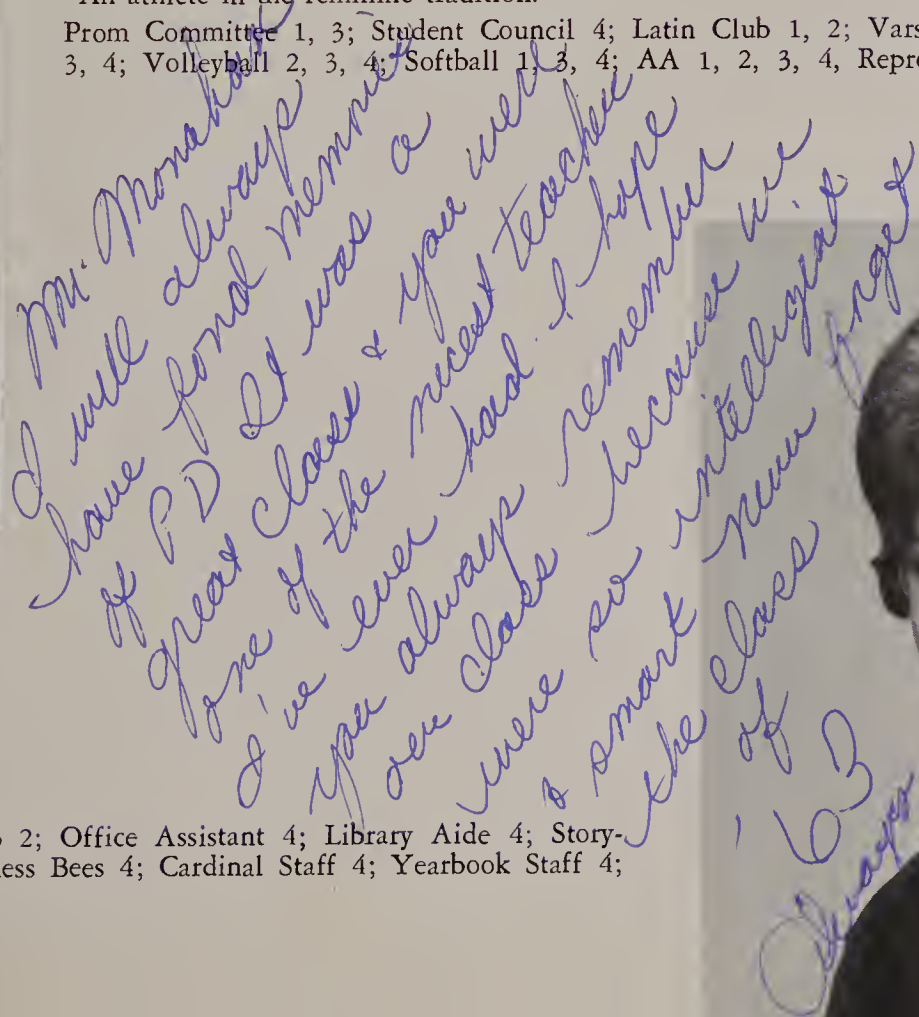 An athlete in the feminine tradition.
Prom Committee 1, 3; Student Council 4; Latin Club 1, 2; Vars
3, 4; Volleyball 2, 3, 4; Softball 1, 3, 4; AA 1, 2, 3, 4, Repre
Mr. Monahan
I will always
have fond memories
of PD It was a
great class & you were
one of the nicest teachers
I've ever had. I hope
you always remember
our class because we
were so intelligent
& smart never forget
the class
of
'63
Always
2; Office Assistant 4; Library Aide 4; Story-
ess Bees 4; Cardinal Staff 4; Yearbook Staff 4;